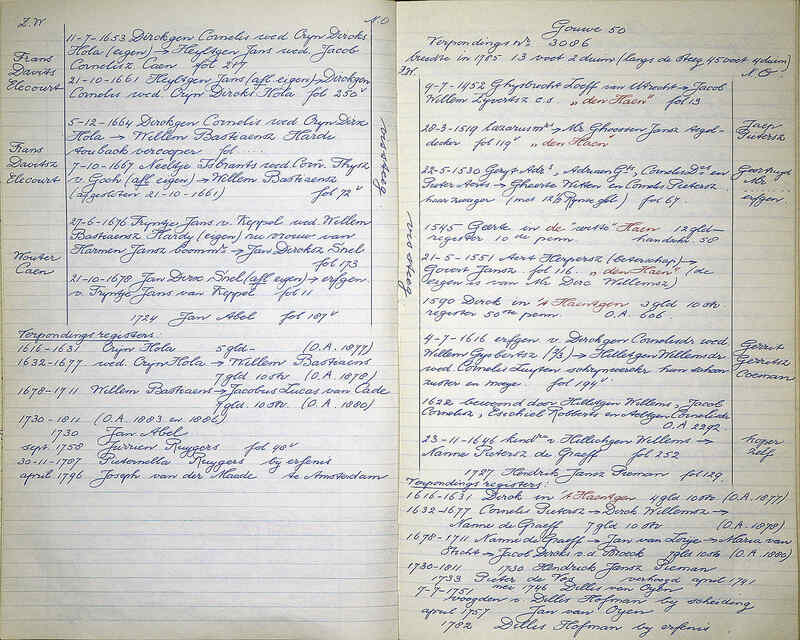 Z.W N.O
11-7-1653 Dirckgen Cornelis wed Cryn Dircks
Hola (eigen) → Heyltgen Jans wed. Jacob
Cornelisz. Caen fol 217
Frans
Davits
Elecourt
21-10-1661 Heyltgen Jans (afl eigen) → Dirckgen
Cornelis wed. Cryn Dircks Hola fol 250v
5-12-1664 Dirckgen Cornelis wed Cryn Dirx
Hola → Willem Bastiaensz Harde
verkooper fol ....
Frans
Davitsz
Elecourt
7-10-1667 Neeltge Isbrants wed Corn. Thysz
v. Goch (afl eigen) → Willem Bastiaensz
(afgesloten 21-10-1661) fol 72v
27-6-1676 Fryntje Jans v. Keppel wed. Willem
Bastiaensz Hardy (eigen) nu vrouw van
Harmen Jansz boomm. → Jan Dircksz Snel
fol 173
Wouter
Caen
21-10-1678 Jan Dircx Snel (afl eigen) → erfgen.
v. Fryntje Jans van Keppel fol 11
1724 Jan Abel fol 187v
vissteeg
Verpondings registers:
1616-1631 Cryn Hola 5 gld - (O.A. 1877)
1632-1677 wed. Cryn Hola → Willem Bastiaens
7 gld 10 stv (O.A. 1878)
1678-1711 Willem Bastiaens → Jacobus Lucas van Cade
7 gld. 10 stv. (O.A. 1880)
1730-1811 (O.A. 1883 en 1886)
1730 Jan Abel
sept. 1758 Jurrien Ruggers fol 40v
30-11-1787 Pieternella Ruggers by erfenis
april 1796 Joseph van der Maade te Amsterdam
Gouwe 50
Verpondings No 3086
breedte in 1785 13 voet 2 duim (langs de steeg 45 voet 4 duim)
Z.W. N.O.
4-7-1452 Ghysbrecht Loeff van Utrecht → Jacob
Willem Zyvertsz c.s. „den Haen" fol 13
28-3-1519 → Mr. Ghoossen Jansz
decker fol 119v „den Haen
Jaep
Pietersz
22-5-1530 Geryt Adr., Adriaen, Cornelis en
Pieter Aerts → Gheerte Witten en Cornelis Pietersz
haer zwager (met 12½ Rynse gld) fol 67.
Geertruyd
Mr.
erfgen
1545 Geerte in de "witte" Haen 12 gld -
register 10de penn. handschr. 58
21-5-1551 Aert Herpersz (beterschap) →
Govert Jansz fol 116. „den Haen" (de
eigen is van Mr. Dirc Willemsz)
1590 Dirck in 't Haentgen 3 gld 10 stv.
register 50ste penn. O.A. 606.
4-7-1616 erfgen v. Dirckgen Cornelisdr wed
Willem Gysbertsz (⅔) → Hilletgen Willemsdr
wed Cornelis Luyten schrynwercker hun schoon
zuster en moye. fol 194v
Gerrit
Gerritsz
Coeman
1622 bewoond door Hilletgen Willems, Jacob
Cornelisz, Eschiel Robberts en Aeltgen Cornelisdr
O.A. 2292.
23-11-1646 kind. v. Hillichgen Willems →
Nanne Pietersz de Graeff fol 252
koper
zelf
1727 Hendrick Jansz Pieman fol 129.
vissteeg
Verpondings registers:
1616-1631 Dirck in 't Haentgen 4 gld 10 stv. (O.A. 1877)
1632-1677 Cornelis Pietersz → Dirck Willemsz →
Nanne de Graeff 7 gld 10 stv (O.A. 1878)
1678-1711 Nanne de Graeff → Jan van Lorje → Maria van
Sticht → Jacob Dircks v.d. Broeck 7 gld 10 stv (O.A. 1880)
1730-1811 1730 Hendrick Jansz Pieman
1733 Pieter de Vos verhoogd april 1741
mei 1746 Dilles van Oyen
7-7-1751 voogden v. Dilles Hofman by scheiding
april 1757 Jan van Oyen
1782 Dilles Hofman by erfenis